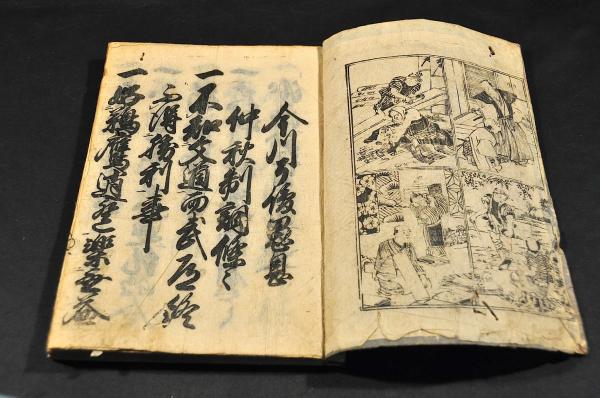 今川了俊愚息
仲秋制詞條々
一不知文道而武道終
不得勝利事
一好鵜鷹逍遥楽無益